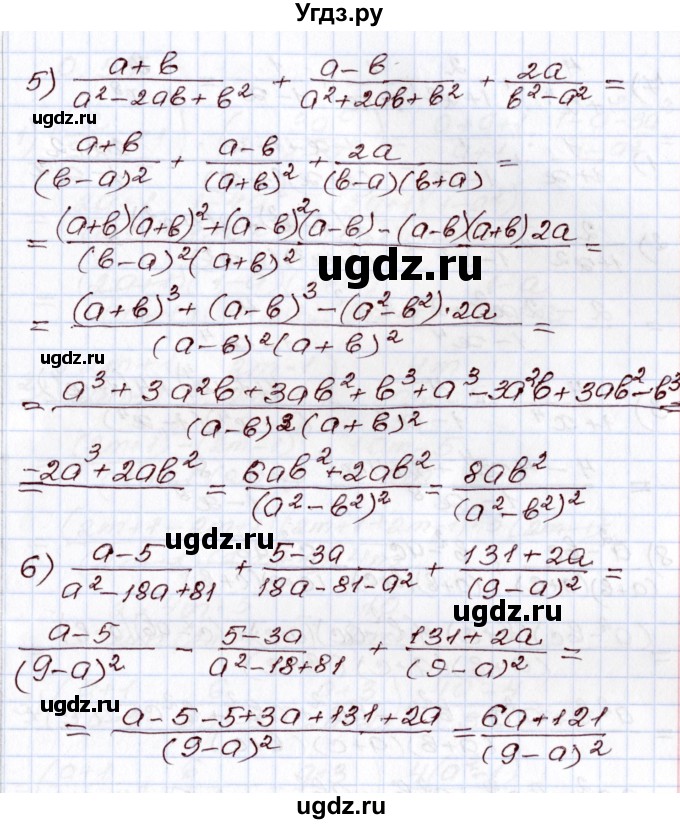 Угдз.ру
5) (a+b)/(a²-2ab+b²) + (a-b)/(a²+2ab+b²) + 2a/(b²-a²) =
ugdz.ru
(a+b)/(b-a)² + (a-b)/(a+b)² + 2a/((b-a)(b+a)) =
= ((a+b)(a+b)²+(a-b)²(a-b)-(a-b)(a+b)2a)/((b-a)²(a+b)²) =
ugdz.ru
= ((a+b)³+(a-b)³-(a²-b²)·2a)/((a-b)²(a+b)²) =
ugdz.ru
= (a³+3a²b+3ab²+b³+a³-3a²b+3ab²-b³)/((a-b)²(a+b)²) =
= -2a³+2ab² = (6ab²+2ab²)/(a²-b²)² = 8ab²/(a²-b²)²
ugdz.ru
6) (a-5)/(a²-18a+81) + (5-3a)/(18a-81-a²) + (131+2a)/(9-a)² =
ugdz.ru
(a-5)/(9-a)² - (5-3a)/(a²-18+81) + (131+2a)/(9-a)² =
ugdz.ru
= (a-5-5+3a+131+2a)/(9-a)² = (6a+121)/(9-a)²
ugdz.ru
ugdz.ru